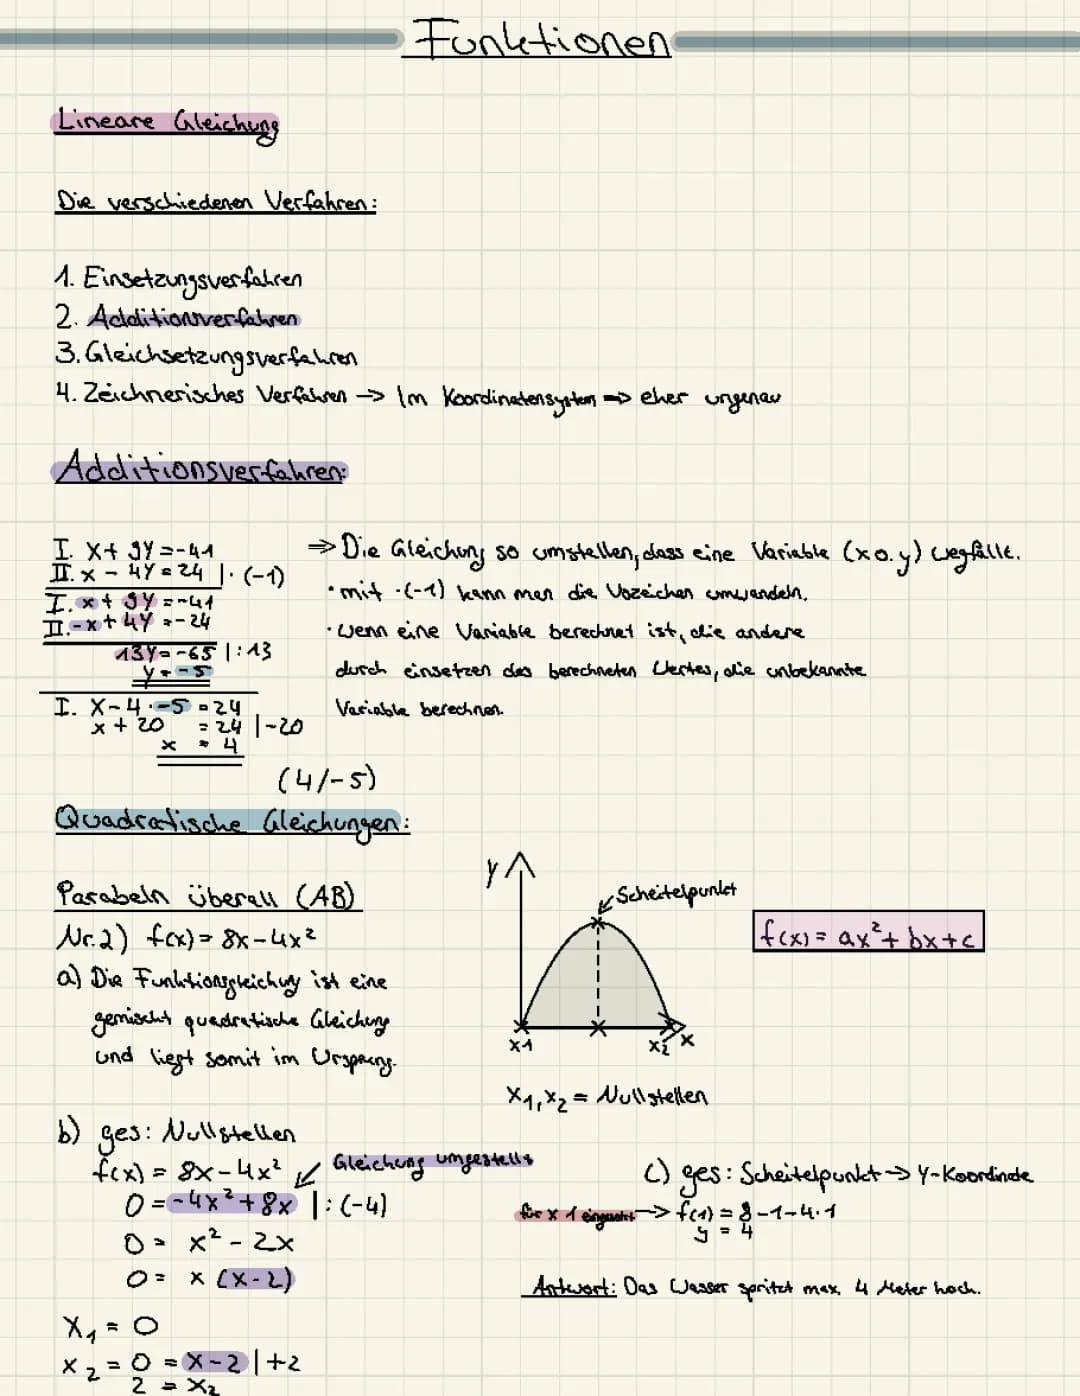 Funktionen
Lineare Gleichung
Die verschiedenen Verfahren:
1. Einsetzungsverfahren
2. Additionsverfahren
3. Gleichsetzungsverfahren
4. Zeichnerisches Verfahren -> Im Koordinatensystem => eher ungenau
Additionsverfahren:
I. x + 9y = -41
II. x - 4y = 24 | · (-1)
I. x + 9y = -41
II. -x + 4y = -24
13y = -65 | : 13
y = -5
I. x - 4 · -5 = 24
x + 20 = 24 | -20
x = 4
(4/-5)
=> Die Gleichung so umstellen, dass eine Variable (x o. y) wegfällt.
· mit · (-1) kann man die Vozeichen umwandeln.
· Wenn eine Variable berechnet ist, die andere
durch einsetzen des berechneten Wertes, die unbekannte
Variable berechnen.
Quadratische Gleichungen:
Parabeln überall (AB)
Nr. 2) f(x) = 8x - 4x²
a) Die Funktionsgleichung ist eine
gemischt quadratische Gleichung
und liegt somit im Ursprung.
y
Scheitelpunkt
x1
x2
x
x₁, x₂ = Nullstellen
f(x) = ax² + bx + c
b) ges: Nullstellen
f(x) = 8x - 4x²
Gleichung umgestellt
0 = -4x² + 8x | : (-4)
0 = x² - 2x
0 = x (x - 2)
x₁ = 0
x₂ = 0 = x - 2 | +2
2 = x₂
c) ges: Scheitelpunkt -> y-Koordinate
für x 1 eingesetzt -> f(1) = 8 - 1 - 4 · 1
y = 4
Antwort: Das Wasser spritzt max. 4 Meter hoch.